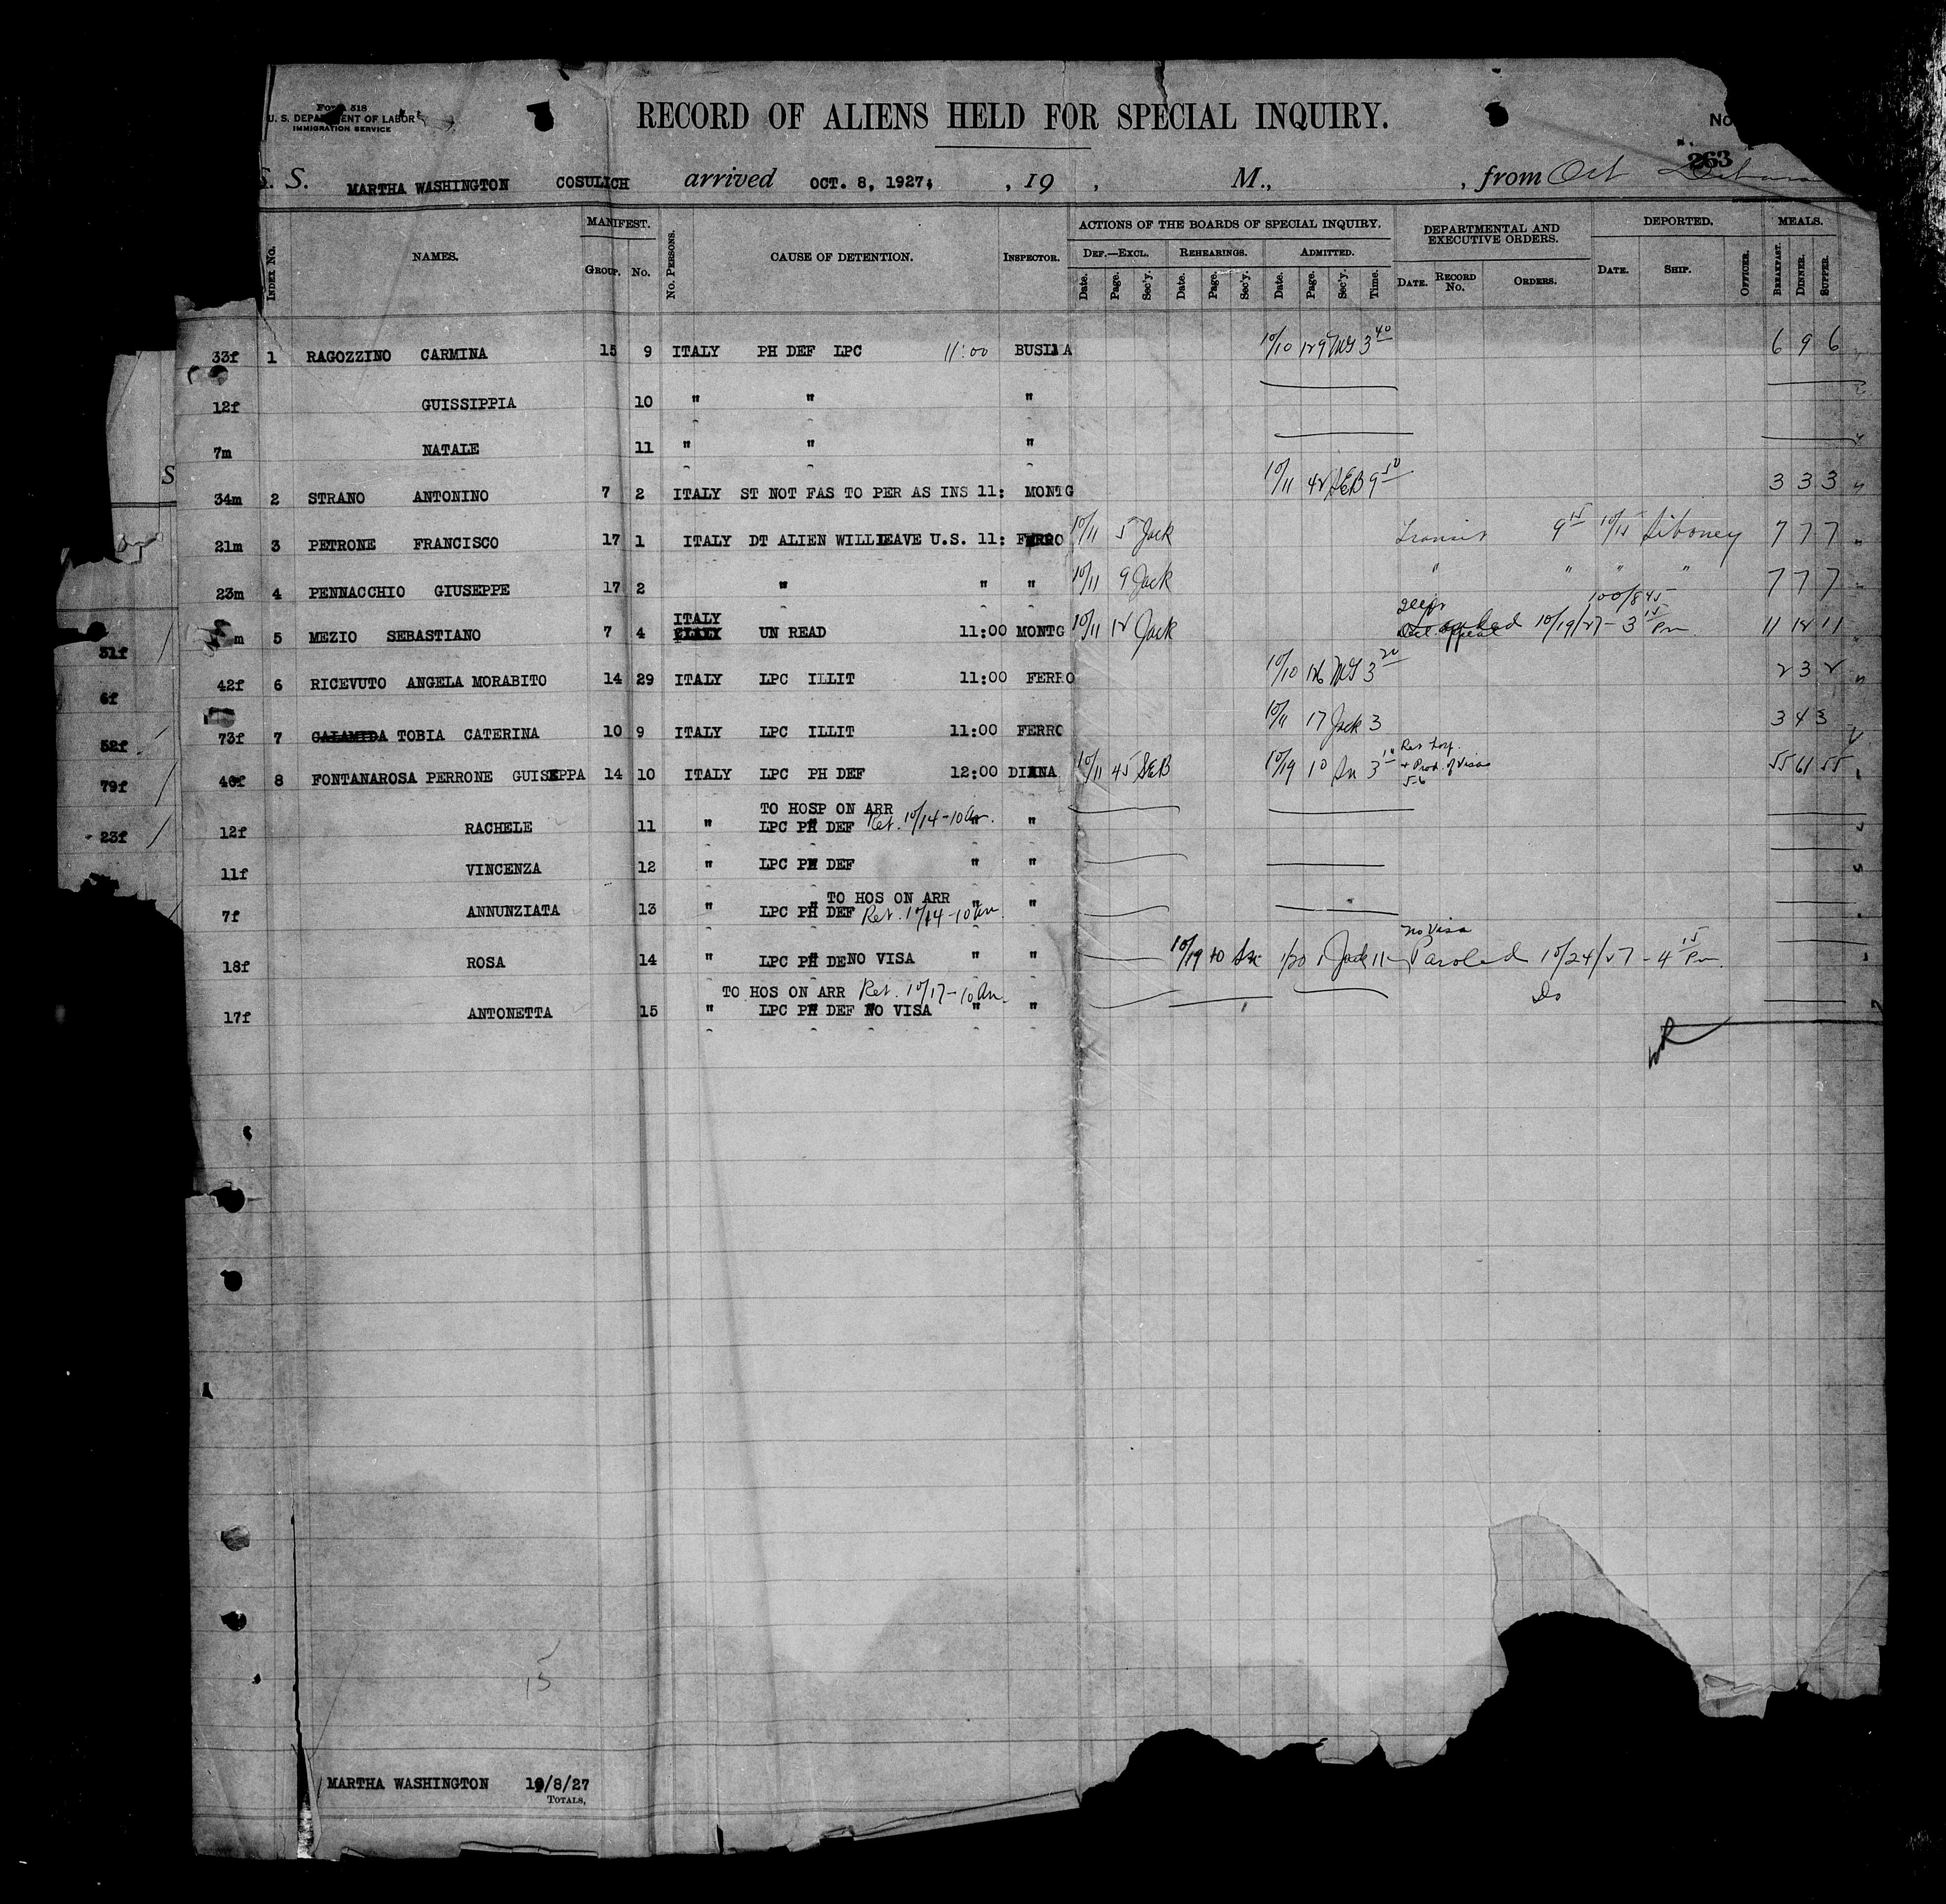 Form 518
U. S. DEPARTMENT OF LABOR
IMMIGRATION SERVICE
RECORD OF ALIENS HELD FOR SPECIAL INQUIRY.
No
263
S. S. MARTHA WASHINGTON COSULICH arrived OCT. 8, 1927, , 19 , M., , from Oct
Index No. NAMES. MANIFEST. GROUP. No. No. Persons. CAUSE OF DETENTION. INSPECTOR. ACTIONS OF THE BOARDS OF SPECIAL INQUIRY. DEF.—EXCL. Date. Page. Sec'y. REHEARINGS. Date. Page. Sec'y. ADMITTED. Date. Page. Sec'y. Time. DEPARTMENTAL AND EXECUTIVE ORDERS. DATE. RECORD No. ORDERS. DEPORTED. DATE. SHIP. OFFICER. MEALS. BREAKFAST. DINNER. SUPPER.
33f 1 RAGOZZINO CARMINA 15 9 ITALY PH DEF LPC 11:00 10/10 129 3 40 6 9 6
12f GUISSIPPIA 10 " " "
7m NATALE 11 " " "
34m 2 STRANO ANTONINO 7 2 ITALY ST NOT FAS TO PER AS INS 11: MONTG 10/11 42 SEB 9 50 3 3 3
21m 3 PETRONE FRANCISCO 17 1 ITALY DT ALIEN WILL LEAVE U.S. 11: FERRO 10/11 5 Jack Transit 9 15 10/15 Siboney 7 7 7
23m 4 PENNACCHIO GIUSEPPE 17 2 " " " 10/11 9 Jack " " " " 7 7 7
m 5 MEZIO SEBASTIANO 7 4 ITALY UN READ 11:00 MONTG 10/11 12 Jack appeal 10/19/27 - 3 15 Pm 11 12 11
31f
42f 6 RICEVUTO ANGELA MORABITO 14 29 ITALY LPC ILLIT 11:00 FERRO 10/10 126 3 20 2 3 2
6f
73f 7 CALAMIDA TOBIA CATERINA 10 9 ITALY LPC ILLIT 11:00 FERRO 10/11 17 Jack 3 3 4 3
52f
46f 8 FONTANAROSA PERRONE GUISEPPA 14 10 ITALY LPC PH DEF 12:00 DIANA 10/11 45 SEB 10/19 10 3 10 55 61 55
79f
TO HOSP ON ARR
12f RACHELE 11 " LPC PH DEF Ret. 10/14-10 am. " "
23f
11f VINCENZA 12 " LPC PH DEF " "
TO HOS ON ARR
7f ANNUNZIATA 13 " LPC PH DEF Ret. 10/14-10 am. " "
no Visa
18f ROSA 14 " LPC PH DE NO VISA " " 10/19 10 Jack 11 Paroled 10/24/27 - 4 15 Pm.
TO HOS ON ARR Ret. 10/17-10 am.
17f ANTONETTA 15 " LPC PH DEF NO VISA " " Do
15
MARTHA WASHINGTON 10/8/27
TOTALS,